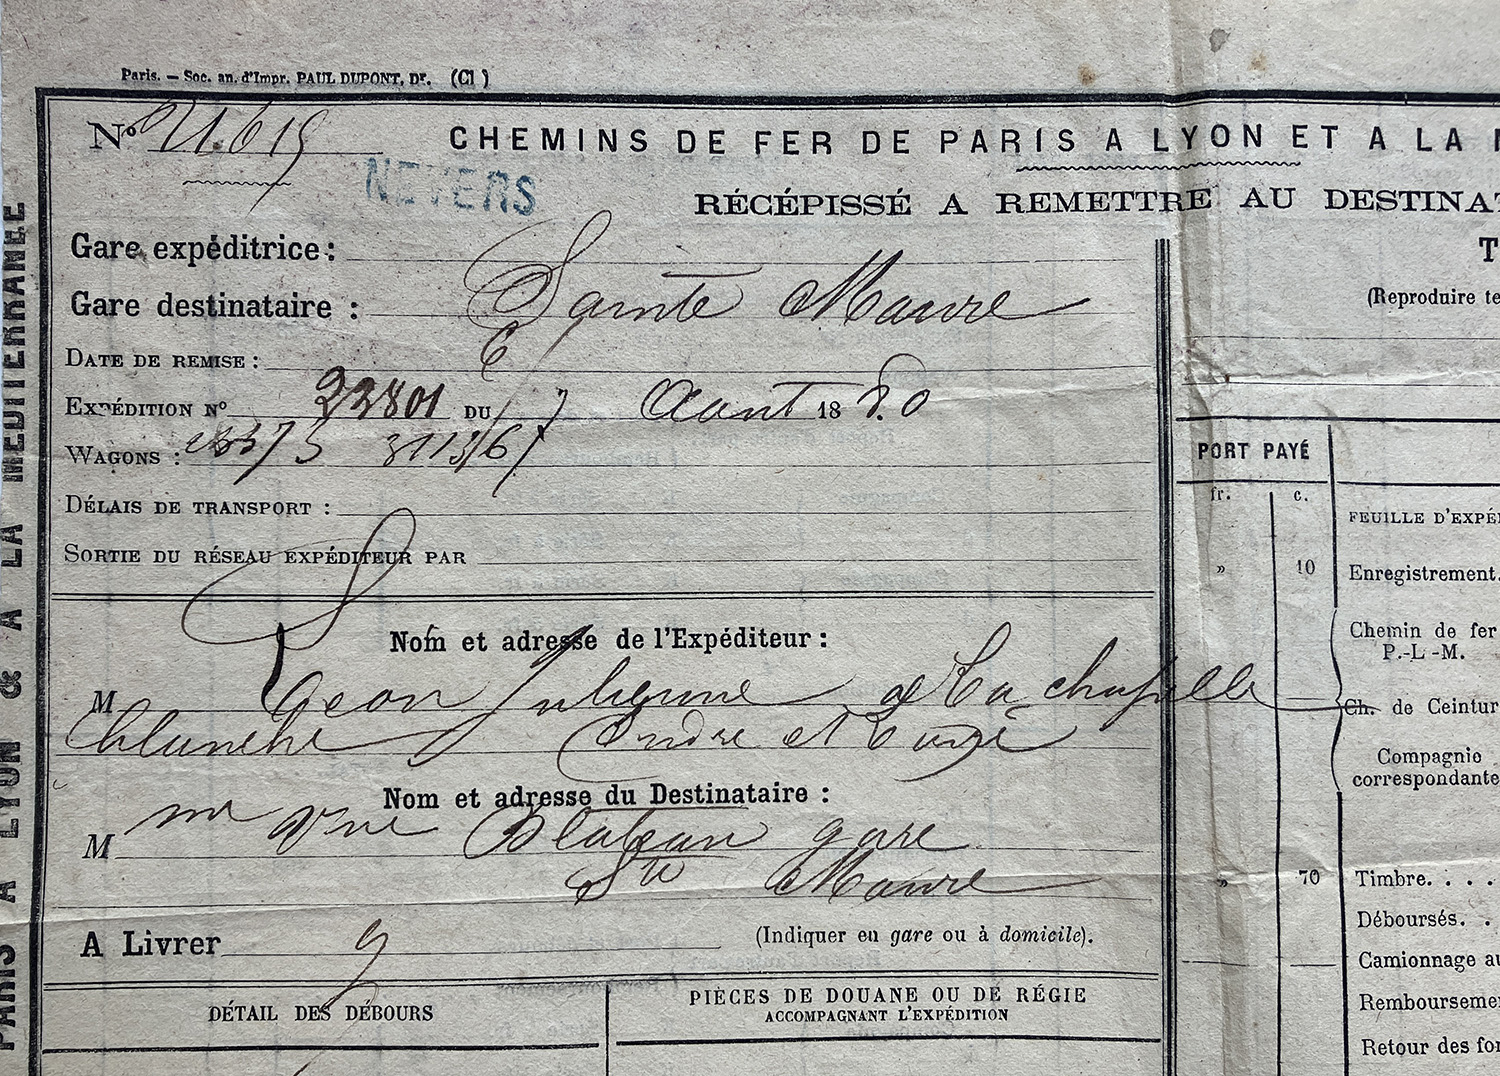 Paris. — Soc. an. d'Impr. PAUL DUPONT, Dr. (Cl )
No 21.619
CHEMINS DE FER DE PARIS A LYON ET A LA
NEVERS
RÉCÉPISSÉ A REMETTRE AU DESTINAT
Gare expéditrice :
T
Gare destinataire : Sainte Maure
(Reproduire te
DATE DE REMISE : 6
EXPÉDITION No 22801 DU 7 Aout 1880
WAGONS :
DÉLAIS DE TRANSPORT :
SORTIE DU RÉSEAU EXPÉDITEUR PAR
Nom et adresse de l'Expéditeur :
M Julienne de La chapelle
blanche Indre et
Nom et adresse du Destinataire :
M gare
Ste Maure
A Livrer g (Indiquer en gare ou à domicile).
DÉTAIL DES DÉBOURS
PIÈCES DE DOUANE OU DE RÉGIE
ACCOMPAGNANT L'EXPÉDITION
PORT PAYÉ
fr. c.
FEUILLE D'EXPÉ
» 10 Enregistrement.
Chemin de fer
P.-L-M.
Ch. de Ceintur
Compagnie
correspondante
» 70 Timbre. . . .
Déboursés. .
Camionnage au
Rembourseme
Retour des fon
PARIS A LYON & A LA MÉDITERRANÉE